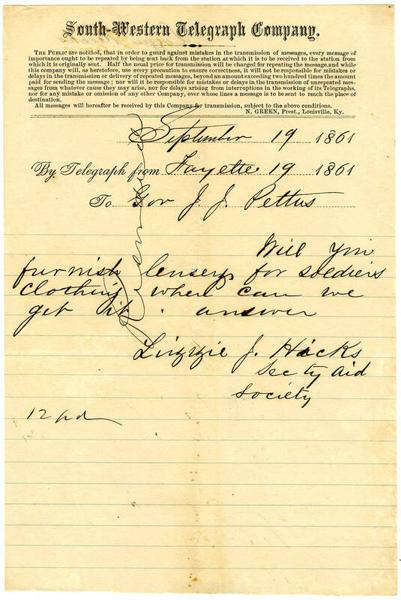 South-Western Telegraph Company.
THE PUBLIC are notified, that in order to guard against mistakes in the transmission of messages, every message of
importance ought to be repeated by being sent back from the station at which it is to be received to the station from
which it is originally sent. Half the usual price for transmission will be charged for repeating the message, and while
this company will, as heretofore, use every precaution to ensure correctness, it will not be responsible for mistakes or
delays in the transmission or delivery of repeated messages, beyond an amount exceeding two hundred times the amount
paid for sending the message; nor will it be responsible for mistakes or delays in the transmission of unrepeated mes-
sages from whatever cause they may arise, nor for delays arising from interruptions in the working of its Telegraphs,
nor for any mistake or omission of any other Company, over whose lines a message is to be sent to reach the place of
destination.
All messages will hereafter be received by this Company for transmission, subject to the above conditions.
N. GREEN, Prest., Louisville, Ky.
September 19 1861
By Telegraph from Fayette 19 1861
To Gov J. J. Pettus
Will you
furnish lensey for soldiers
clothing when can we
get it. answer
Lizzie J. Hicks
Secty Aid
Society
12 pd